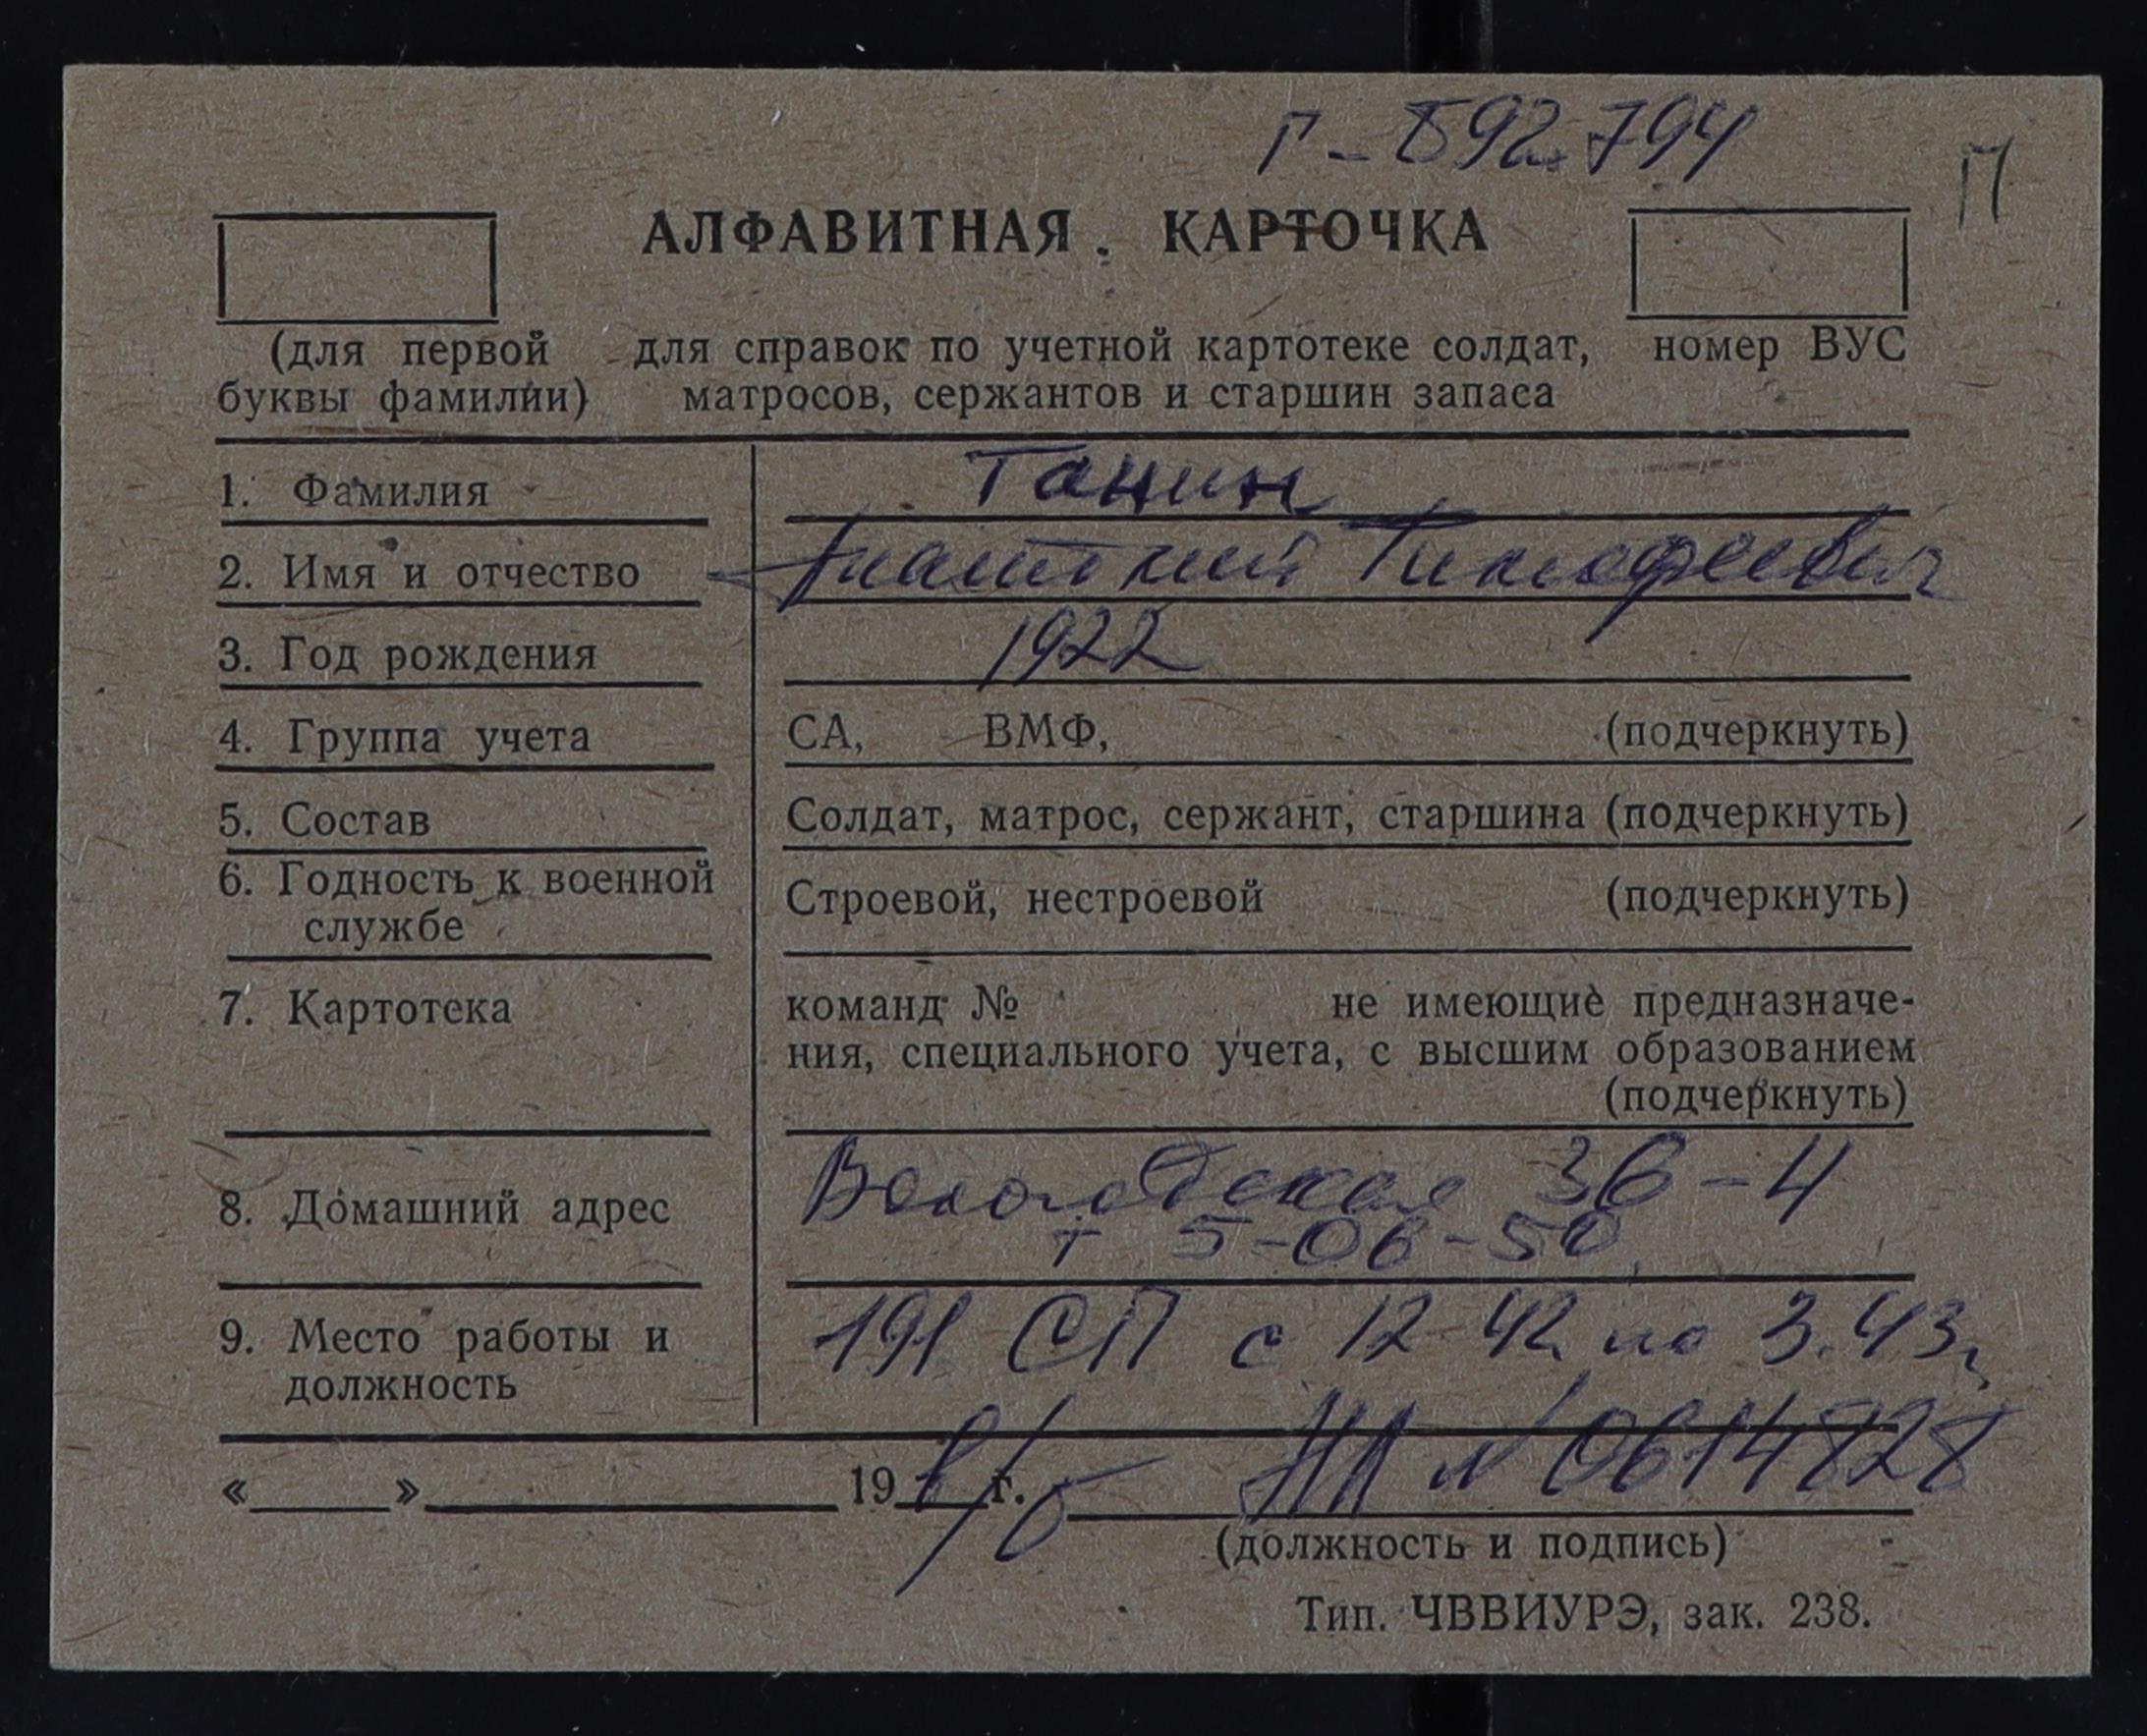 Г-892.794
П
АЛФАВИТНАЯ КАРТОЧКА
(для первой буквы фамилии)
для справок по учетной картотеке солдат,
матросов, сержантов и старшин запаса
номер ВУС
1. Фамилия Танин
2. Имя и отчество Анатолий Тимофеевич
3. Год рождения 1922
4. Группа учета СА, ВМФ, (подчеркнуть)
5. Состав Солдат, матрос, сержант, старшина (подчеркнуть)
6. Годность к военной службе Строевой, нестроевой (подчеркнуть)
7. Картотека команд № не имеющие предназначе-
ния, специального учета, с высшим образованием
(подчеркнуть)
8. Домашний адрес Вологодская 36-4
т 5-06-50
9. Место работы и должность 191 СП с 12-42 по 3.43г
«___» ___ 19__ г. в/б № 0614828
(должность и подпись)
Тип. ЧВВИУРЭ, зак. 238.